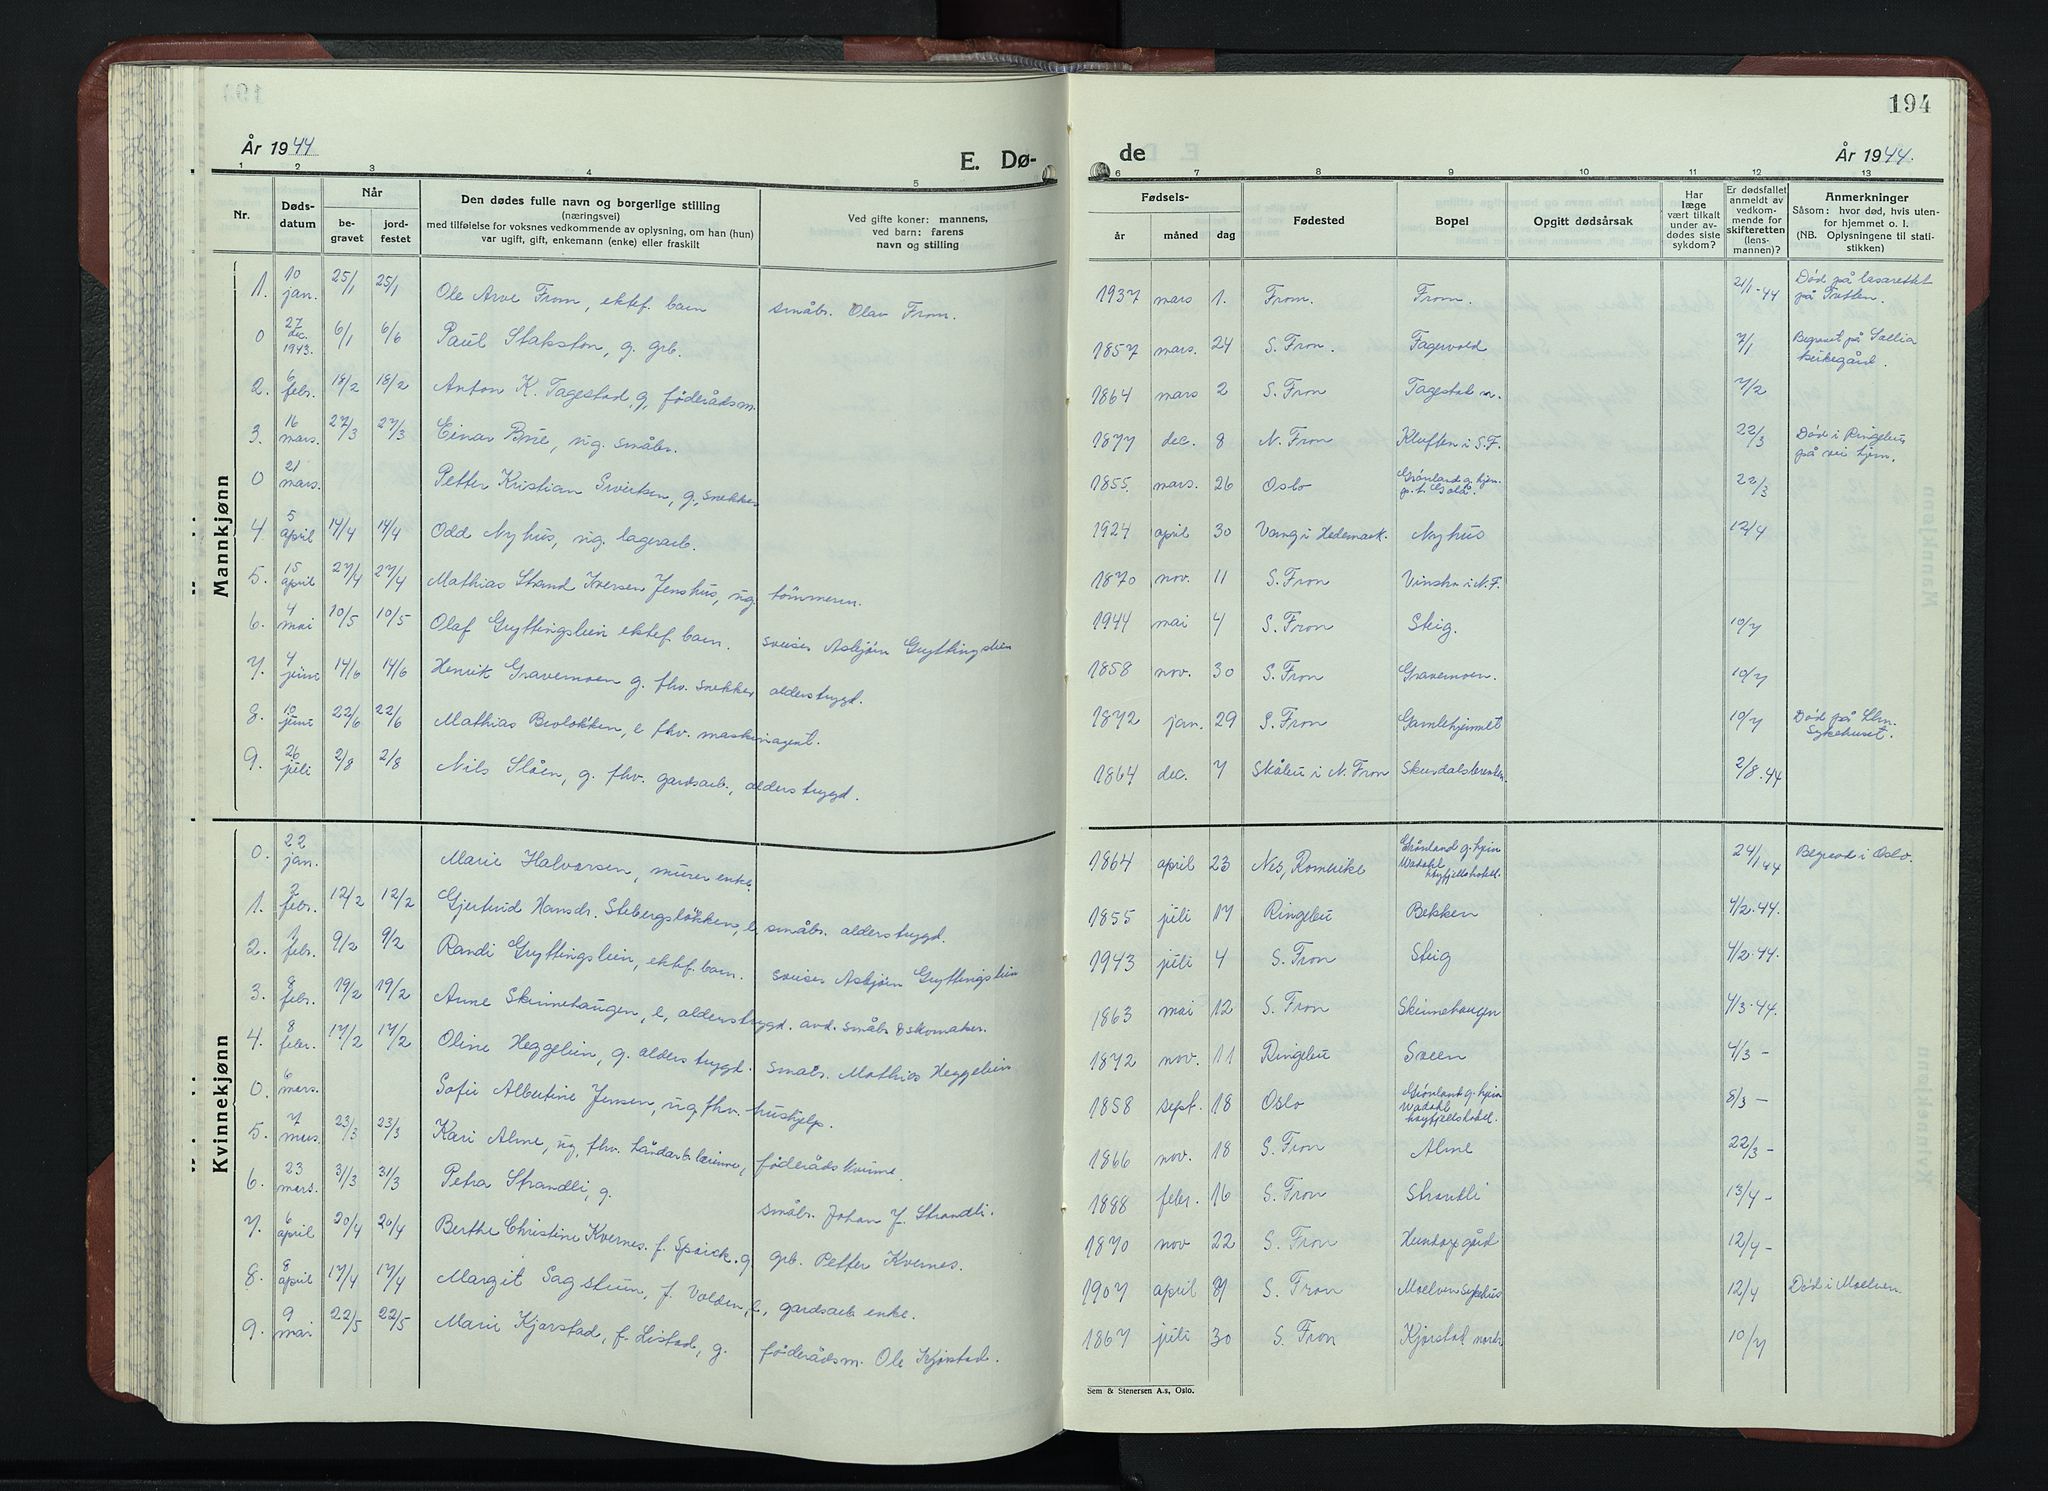 194
År 1944
E. Dø-
de
År 1944.
1 2 3 4 5 6 7 8 9 10 11 12 13
Nr.
Døds-
datum
Når
be-
gravet
jord-
festet
Den dødes fulle navn og borgerlige stilling
(næringsvei)
med tilføielse for voksnes vedkommende av oplysning, om han (hun)
var ugift, gift, enkemann (enke) eller fraskilt
Ved gifte koner: mannens,
ved barn: farens
navn og stilling
Fødsels-
år måned dag
Fødested
Bopel
Opgitt dødsårsak
Har
læge
vært tilkalt
under av-
dødes siste
sykdom?
Er dødsfallet
anmeldt av
vedkom-
mende for
skifteretten
(lens-
mannen)?
Anmerkninger
Såsom: hvor død, hvis uten-
for hjemmet o. l.
(NB. Oplysningene til stati-
stikken)
Mannkjønn
1. 10 jan. 25/1 25/1 Ole Arve Fron, ektef. barn småbr. Olav Fron. 1937 mars 1. Fron. Fron. 21/1-44 Død på lasarettet på Tretten.
0 27 dec. 1943. 6/1 6/6 Paul Stakston, g. grb. 1857 mars. 24 S. Fron. Fagervold 7/1 Begravet på Sollia kirkegård.
2. 6 febr. 18/2 18/2 Anton K. Tagestad, g, føderådsm. 1864 mars 2 S. Fron Tagestad n. 7/2
3. 16 mars. 27/3 27/3 Einar Brie, ug. småbr. 1877 dec. 8 N. Fron Kluften i S.F. 22/3 Død i Ringebu på vei hjem.
0 21 mars. Petter Kristian Sivertsen, g, snekker 1855. mars. 26 Oslo Grønland g. hjem p.t. 22/3
4. 5 april 14/4 14/4 Odd Nyhus, ug. lagerarb. 1924 april 30 Vang i Hedemark. Nyhus 12/4
5. 15 april 27/4 27/4 Mathias Strand Iversen Jenshus, ug. tømmerm. 1870 nov. 11 S. Fron Vinstra i N.F.
6. 4 mai 10/5 10/5 Olaf Gryttingslien ektef. barn. sveiser Asbjørn Gryttingslien 1944 mai 4 S. Fron Steig. 10/7
7. 4 juni 14/6 14/6 Henrik Gravermoen g. fhv. snekker alderstrygd. 1858 nov. 30 S. Fron Gravermoen. 10/7
8. 10 juni 22/6 22/6 Mathias Broløkken, e fhv. maskinagent. 1872 jan. 29 S. Fron Gamlehjemmet 10/7 Død på Llm. Sykehuset.
9. 26 juli 2/8 2/8 Nils Slåen, g. fhv. gardsarb., alderstrygd. 1864 dec. 7 Skåbu i N. Fron 2/8-44
Kvinnekjønn
0. 22 jan. Marie Halvorsen, murer enke. 1864 april 23 Nes, Romerike Grønland g. hjem Wadahl høyfjellshotel. 24/1 44 Begravd i Oslo.
1. 2 febr. 12/2 12/2 Gjertrud Hansdr. Stebergsløkken, e, småbr. alderstrygd. 1855 juli 17 Ringebu Bekken 4/2-44.
2. febr. 9/2 9/2 Randi Gryttingslien, ektef. barn. sveiser Asbjørn Gryttingslien 1943 juli 4 S. Fron Steig 4/2-44.
3. 8 febr. 19/2 19/2 Anne Skinnehaugen, e, alderstrygd. avd. småbr. & skomaker. 1863 mai 12 S. Fron Skinnehaugen 4/3-44.
4. 8 febr. 17/2 17/2 Oline Heggelien, g. alderstrygd. småbr. Mathias Heggelien 1872 nov. 11 Ringebu Sveen 4/3 -
0. 6 mars. Sofie Albertine Jensen, ug, fhv. hushjelp. 1858 sept. 18 Oslo Grønland g. hjem Wadahl høyfjellshotel. 8/3 -
5. 7 mars. 23/3 23/3 Kari Alme, ug, fhv. håndarb.lærinne, føderådskvinne. 1866 nov. 18 S. Fron Alme 22/3 -
6. 23 mars. 31/3 31/3 Petra Strandli, g. småbr. Johan J. Strandli. 1888 febr. 16 S. Fron Strandli 13/4 -
7. 6 april 20/4 20/4 Berthe Christine Kvernes. f. Spoick. g. grb. Petter Kvernes. 1870 nov 22 S. Fron Hundorp gård 12/4 -
8. 8 april 17/4 17/4 Margit Sagstuen, f. Volden, e, gardsarb. enke. 1907 april S. Fron Moelven Sykehus 12/4 Død i Moelven.
9. 9 mai 22/5 22/5 Marie Kjorstad, f. Listad, g. føderådsm. Ole Kjorstad. 1867 juli 30 S. Fron Kjorstad nordr. 10/7
Sem & Stenersen A.s, Oslo.